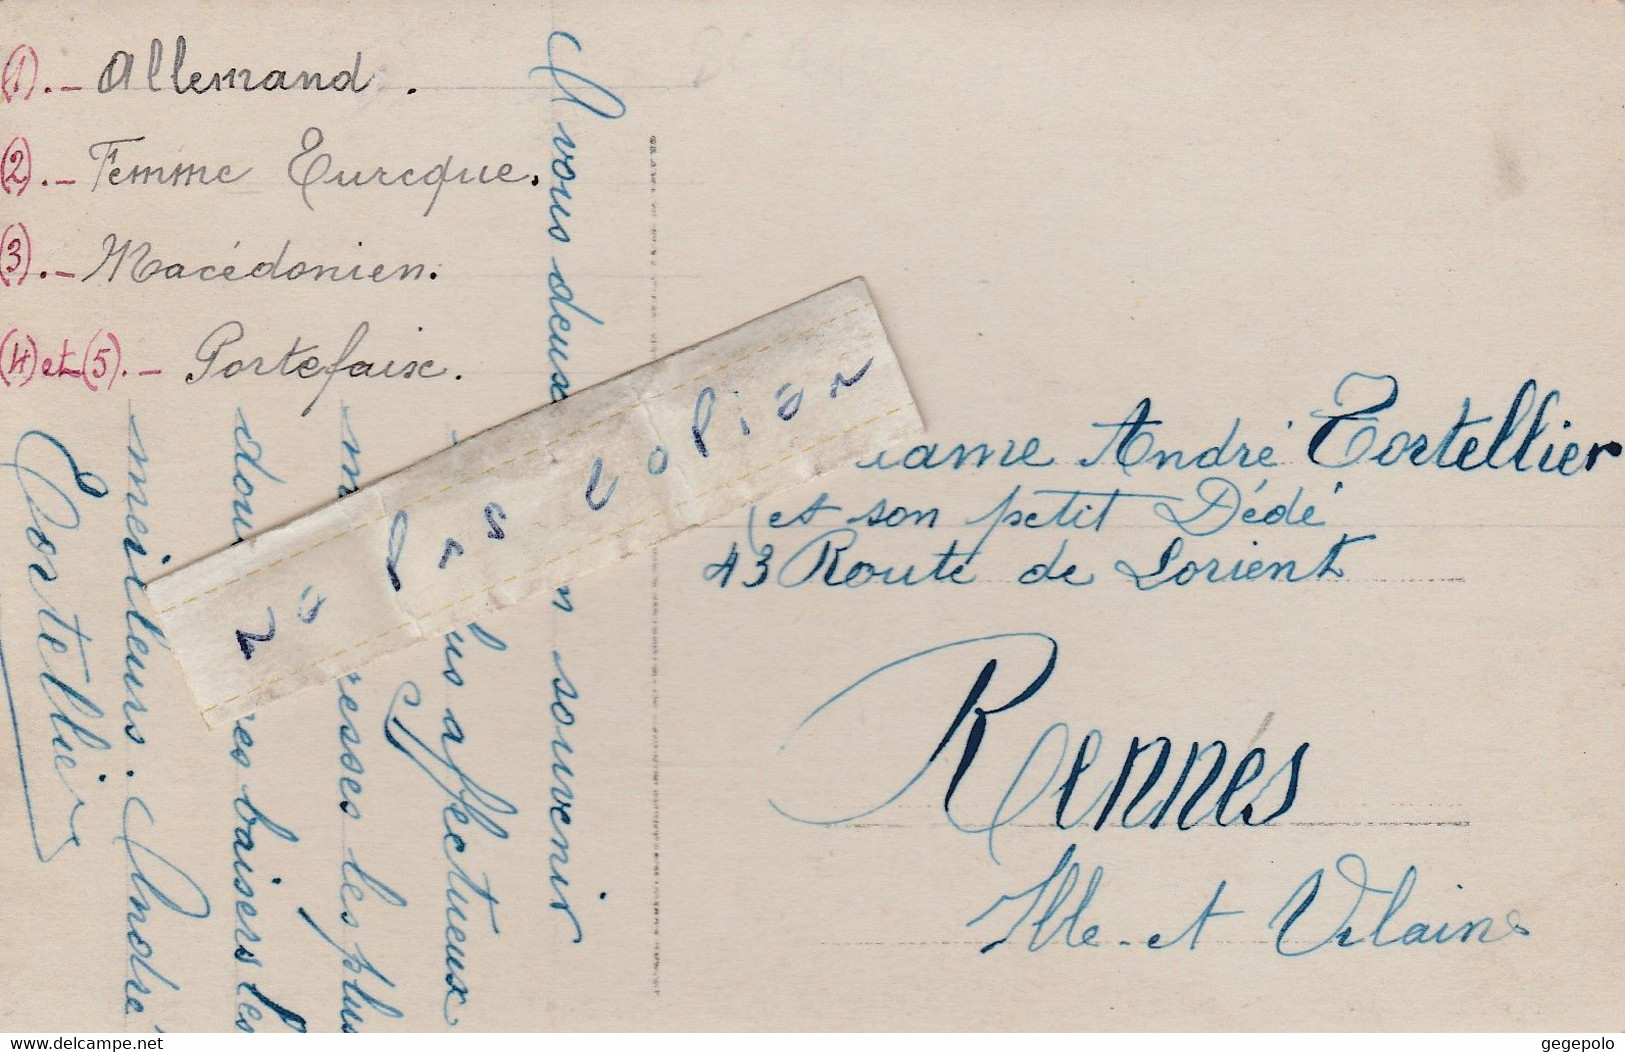 (1).- Allemand.
(2).- Femme Turcque.
(3).- Macédonien.
(4) et (5).- Portefaix.
A vous deux
n souvenir
us affectueux
resses les plus
dou
es baisers les
meilleurs. André
Tortellier
ame André Tortellier
(et son petit Dédé
43 Route de Lorient
Rennes
Ille-et Vilaine
delcampe.net
gegepolo